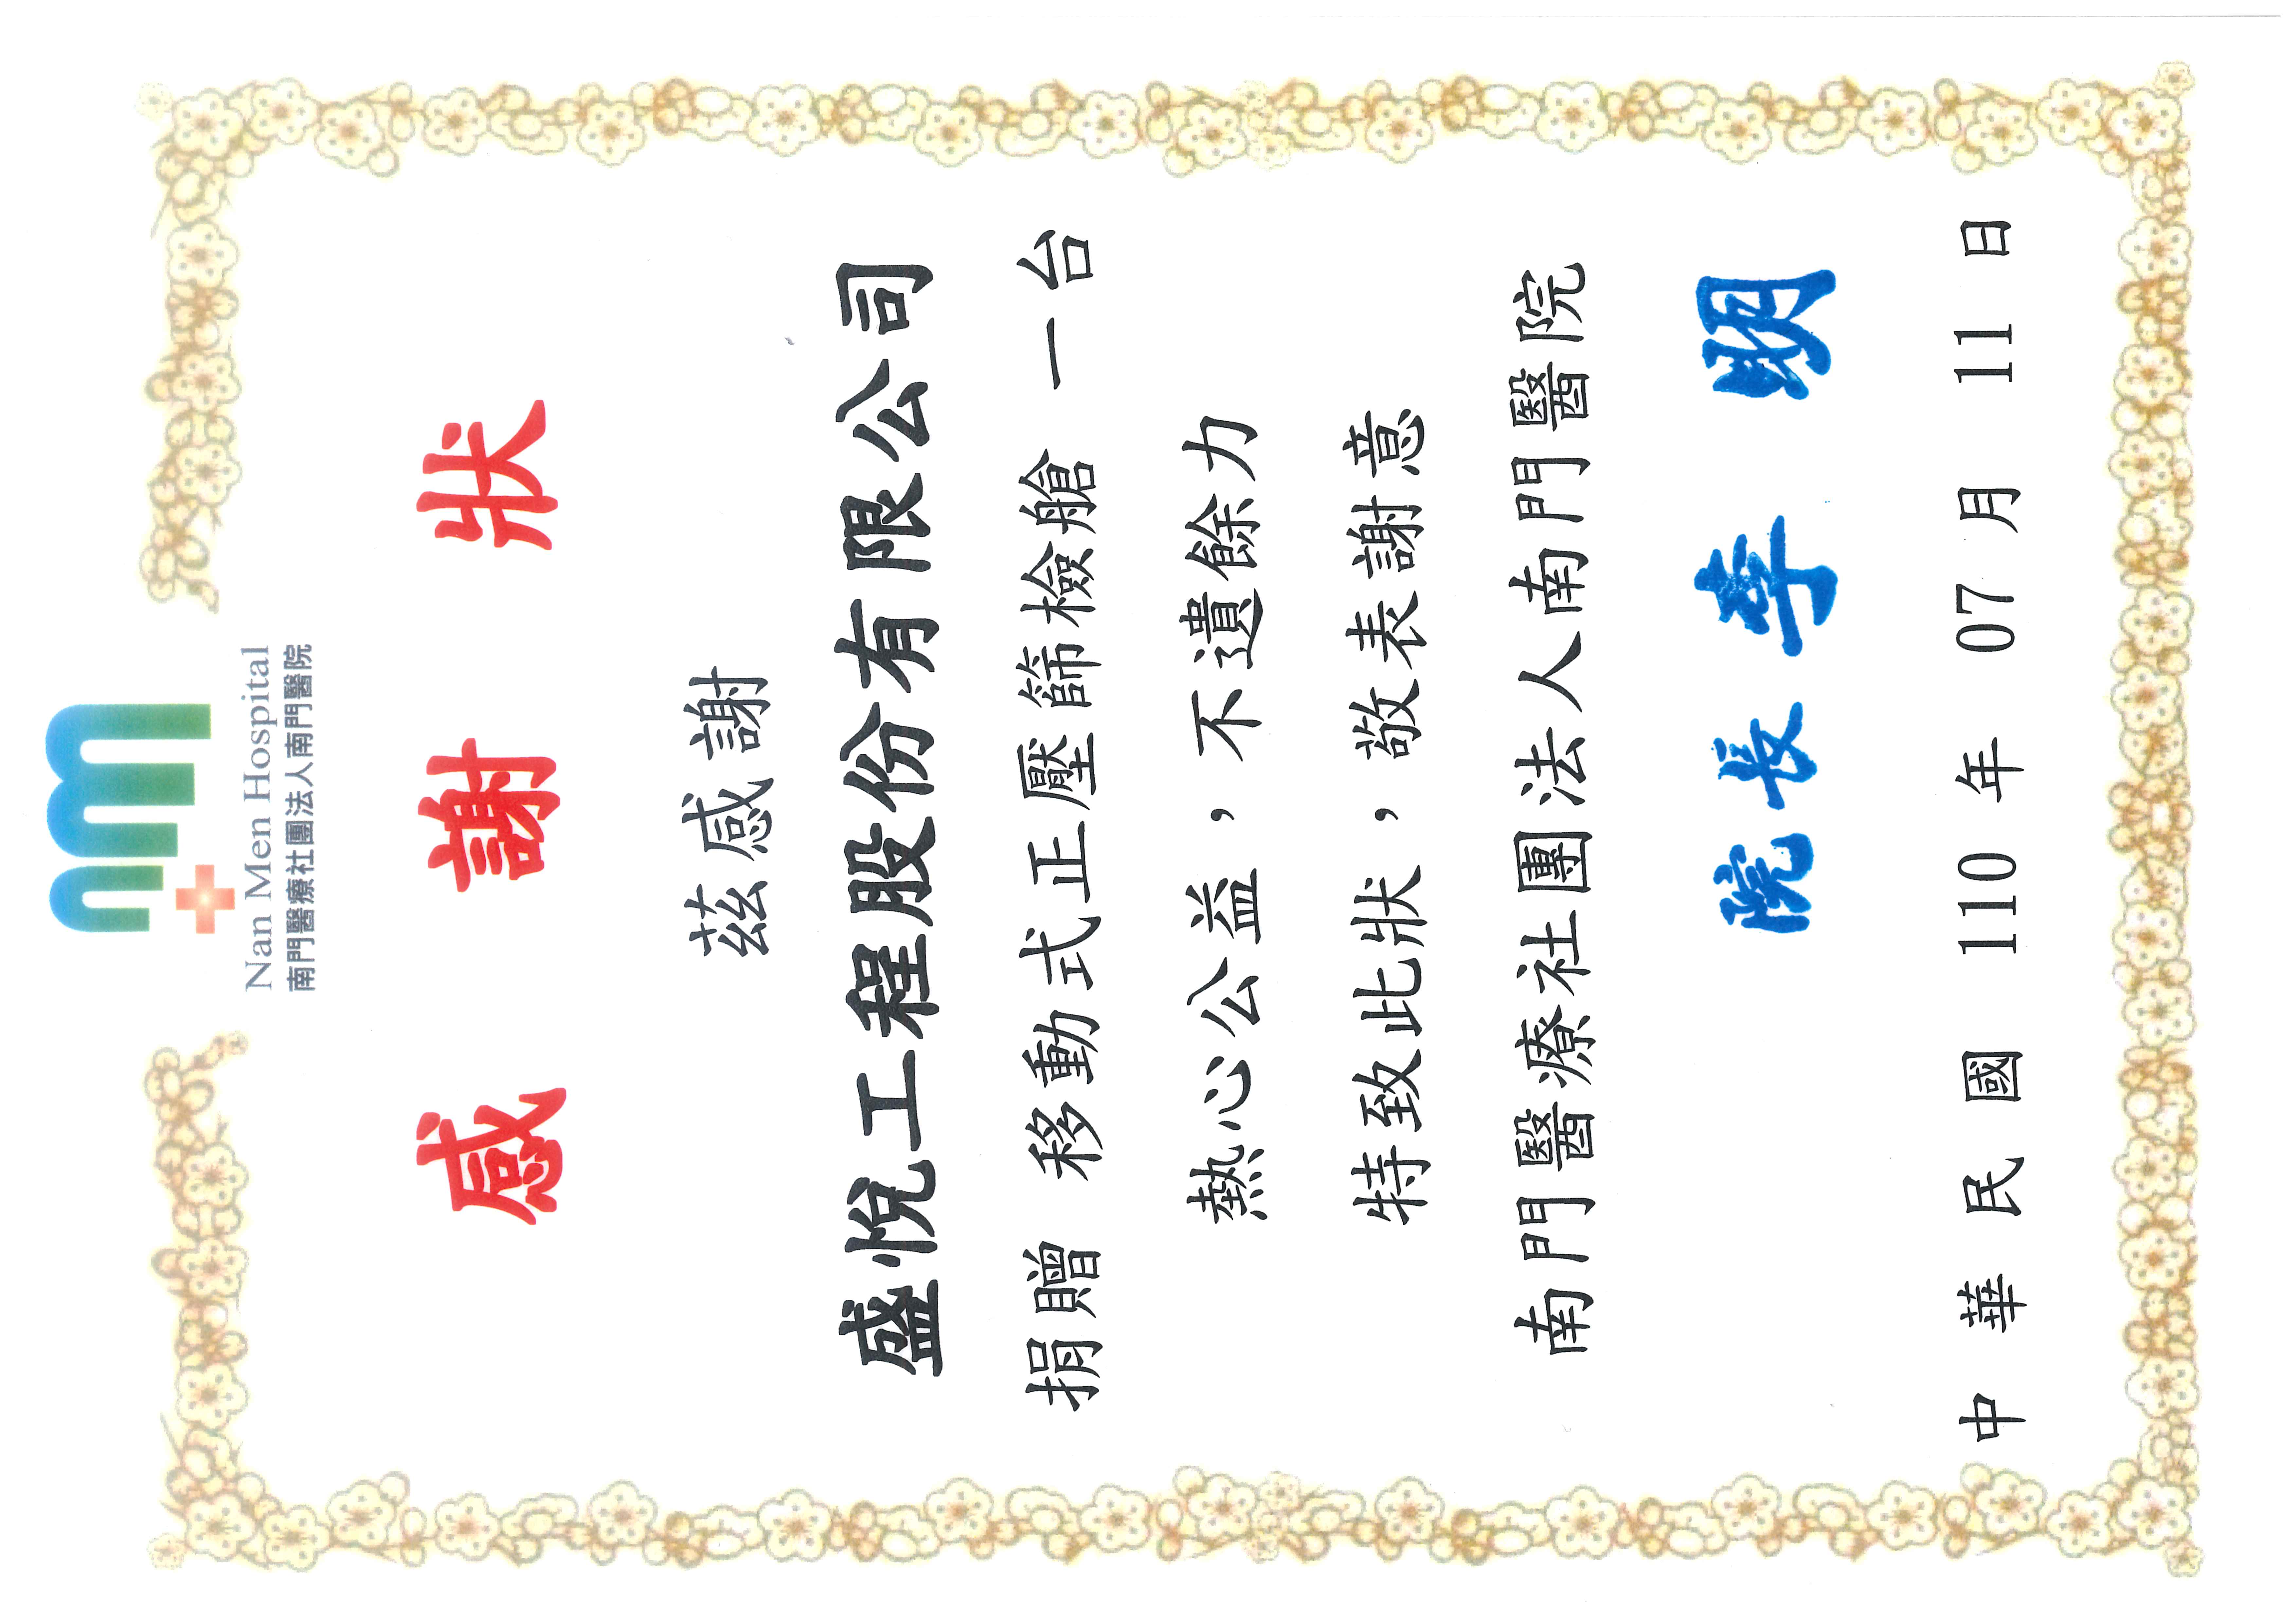 Nan Men Hospital
南門醫療社團法人南門醫院
感謝狀
茲感謝
盛悅工程股份有限公司
捐贈 移動式正壓篩檢艙 一台
熱心公益，不遺餘力
特致此狀，敬表謝意
南門醫療社團法人南門醫院
院長李明
中華民國 110 年 07 月 11 日